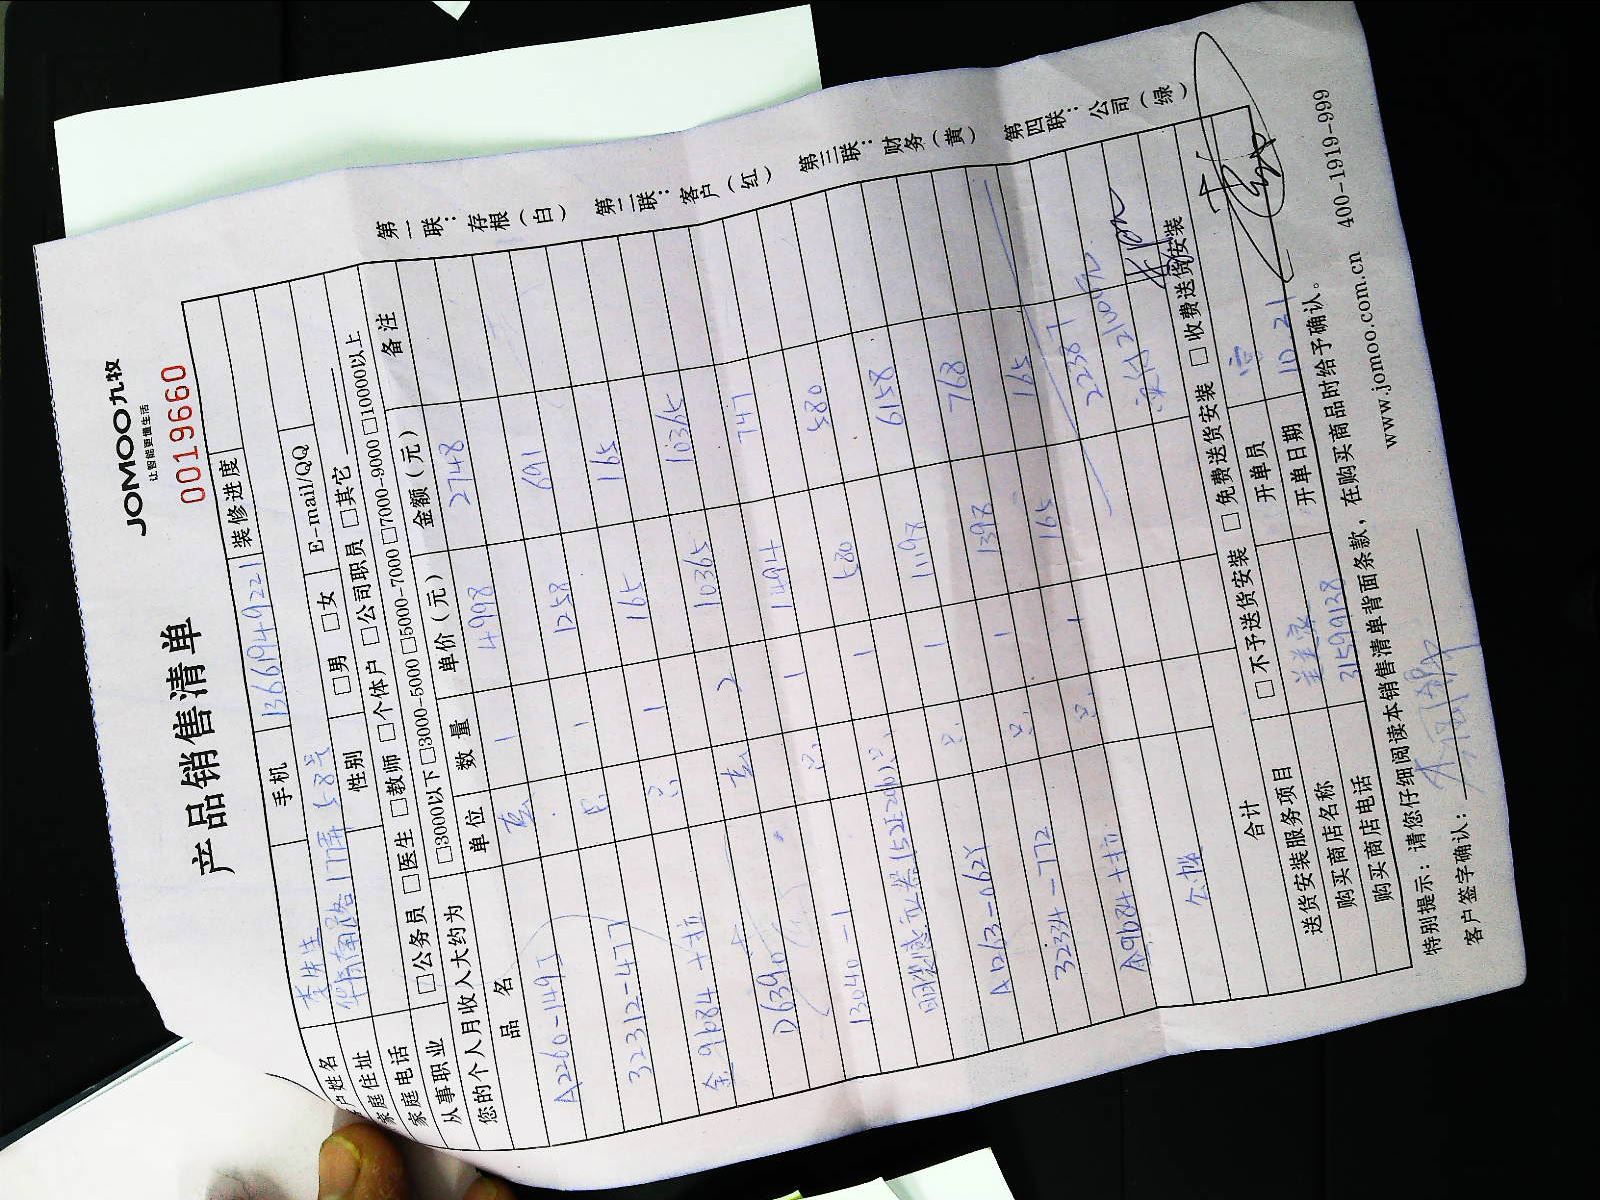 JOMOO九牧
让智能更懂生活
产品销售清单
0019660
户姓名 李先生 手机 13661949221 装修进度
家庭住址 华南路177弄58号 性别 □男 □女 E-mail/QQ
家庭电话
从事职业 □公务员 □医生 □教师 □个体户 □公司职员 □其它
您的个人月收入大约为 □3000以下 □3000-5000 □5000-7000 □7000-9000 □10000以上
品名 单位 数量 单价(元) 金额(元) 备注
A2260-149J 套 1 4998 2748
32312-477 只 1 1258 691
余9b84+拉 只 1 165 165
D6390 套 2 10365 10365
13040-1 只 1 1494 747
1 580 580
只 1 11198 6158
AD13-062Y 只 1 1398 768
32334-772 只 1 165 165
A9b84+拉
22387
合计 21100元
送货安装服务项目 □不予送货安装 □免费送货安装 □收费送货安装
购买商店名称 开单员
购买商店电话 31599128 开单日期 10.21
特别提示:请您仔细阅读本销售清单背面条款,在购买商品时给予确认。
客户签字确认:
www.jomoo.com.cn 400-1919-999
第一联:存根(白) 第二联:客户(红) 第三联:财务(黄) 第四联:公司(绿)